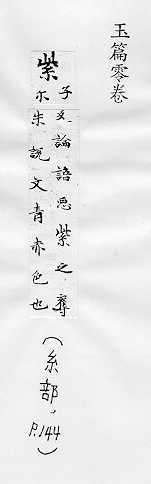 玉篇零卷
紫
子
尒
反論語悪紫之奪
朱說文青赤色也
（糸部，P.144）